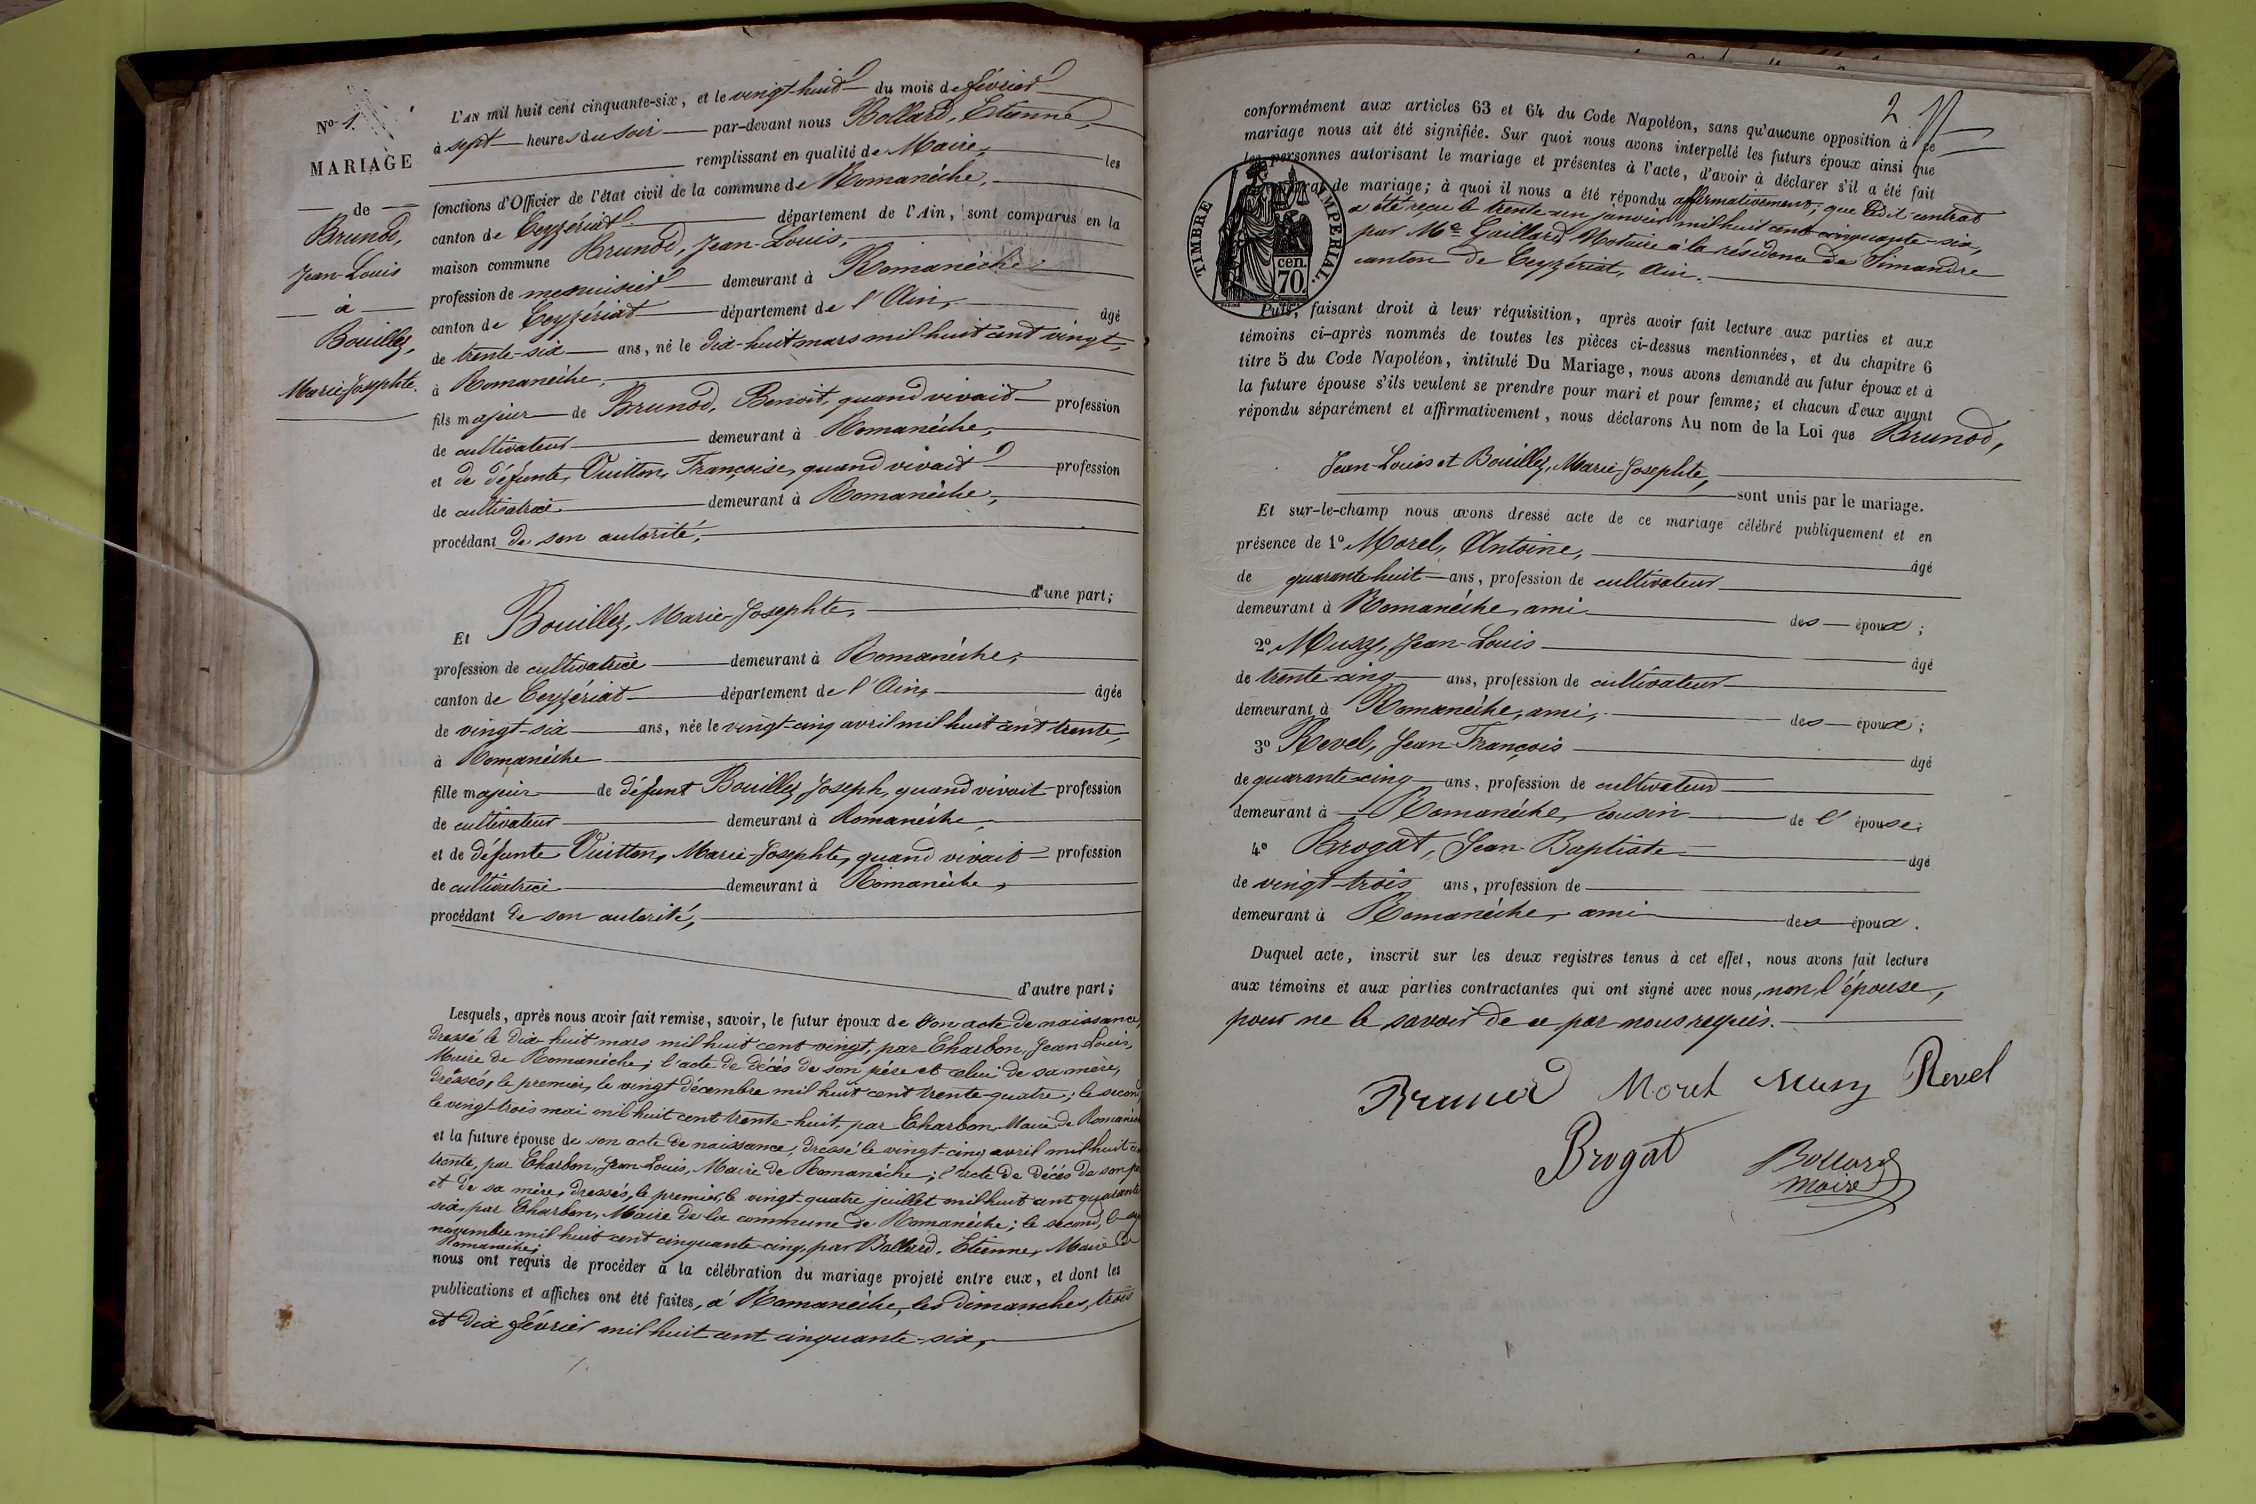 No 1.
MARIAGE
de
Brunod,
Jean-Louis
à
Bouillez,
Marie-Josephte.
L'AN mil huit cent cinquante-six, et le vingt-huit du mois de février
à sept heures du soir par-devant nous Bollard, Etienne,
remplissant en qualité de Maire, les
fonctions d'Officier de l'état civil de la commune de Romanèche,
canton de Ceyzériat département de l'Ain, sont comparus en la
maison commune Brunod, Jean-Louis,
profession de menuisier demeurant à Romanèche
canton de Ceyzériat département de l'Ain, âgé
de trente-six ans, né le dix-huit mars mil huit cent vingt,
à Romanèche,
fils majeur de Brunod, Benoit, quand vivait profession
de cultivateur demeurant à Romanèche,
et de défunte, Vuitton, Françoise, quand vivait profession
de cultivatrice demeurant à Romanèche,
procédant de son autorité,
d'une part;
Et Bouillez, Marie-Josephte,
profession de cultivatrice demeurant à Romanèche,
canton de Ceyzériat département de l'Ain, âgée
de vingt-six ans, née le vingt-cinq avril mil huit cent trente,
à Romanèche
fille majeur de défunt Bouillez Joseph, quand vivait profession
de cultivateur demeurant à Romanèche,
et de défunte Vuitton, Marie-Josephte, quand vivait profession
de cultivatrice demeurant à Romanèche,
procédant de son autorité,
d'autre part;
Lesquels, après nous avoir fait remise, savoir, le futur époux de son acte de naissance,
dressé le dix-huit mars mil huit cent vingt, par Charbon, Jean Louis,
Maire de Romanèche; l'acte de décès de son père et celui de sa mère,
dressés, le premier, le vingt décembre mil huit cent trente-quatre; le second,
le vingt-trois mai mil huit cent trente-huit, par Charbon, Maire de Romanèche
et la future épouse de son acte de naissance, dressé le vingt-cinq avril mil huit cent
trente, par Charbon, Jean-Louis, Maire de Romanèche; l'acte de décès de son père
et de sa mère, dressés, le premier, le vingt-quatre juillet mil huit cent quarante
six, par Charbon, Maire de la commune de Romanèche; le second, le
novembre mil huit cent cinquante-cinq, par Bollard, Etienne, Maire de
Romanèche;
nous ont requis de procéder à la célébration du mariage projeté entre eux, et dont les
publications et affiches ont été faites, à Romanèche, les dimanches, trois
et dix février mil huit cent cinquante-six,
2
conformément aux articles 63 et 64 du Code Napoléon, sans qu'aucune opposition à ce
mariage nous ait été signifiée. Sur quoi nous avons interpellé les futurs époux ainsi que
les personnes autorisant le mariage et présentes à l'acte, d'avoir à déclarer s'il a été fait
contrat de mariage; à quoi il nous a été répondu affirmativement, que ledit contrat
a été reçu le trente-un janvier mil huit cent cinquante-six,
par Me Gaillard, Notaire à la résidence de Simandre
canton de Ceyzériat, Ain.
TIMBRE IMPERIAL.
cen.
70.
Puis, faisant droit à leur réquisition, après avoir fait lecture aux parties et aux
témoins ci-après nommés de toutes les pièces ci-dessus mentionnées, et du chapitre 6
titre 5 du Code Napoléon, intitulé Du Mariage, nous avons demandé au futur époux et à
la future épouse s'ils veulent se prendre pour mari et pour femme; et chacun d'eux ayant
répondu séparément et affirmativement, nous déclarons Au nom de la Loi que Brunod,
Jean-Louis et Bouillez, Marie-Josephte,
sont unis par le mariage.
Et sur-le-champ nous avons dressé acte de ce mariage célébré publiquement et en
présence de 1o Morel, Antoine, âgé
de quarante huit ans, profession de cultivateur
demeurant à Romanèche, ami des époux;
2o Musy, Jean-Louis âgé
de trente-cinq ans, profession de cultivateur
demeurant à Romanèche, ami, des époux;
3o Revel, Jean-François âgé
de quarante-cinq ans, profession de cultivateur
demeurant à Romanèche, cousin de l'épouse;
4o Brogat, Jean-Baptiste âgé
de vingt-trois ans, profession de
demeurant à Romanèche, ami des époux.
Duquel acte, inscrit sur les deux registres tenus à cet effet, nous avons fait lecture
aux témoins et aux parties contractantes qui ont signé avec nous, non l'épouse,
pour ne le savoir de ce par nous requis.
Brunod Morel Musy Revel
Brogat Bollard
Maire